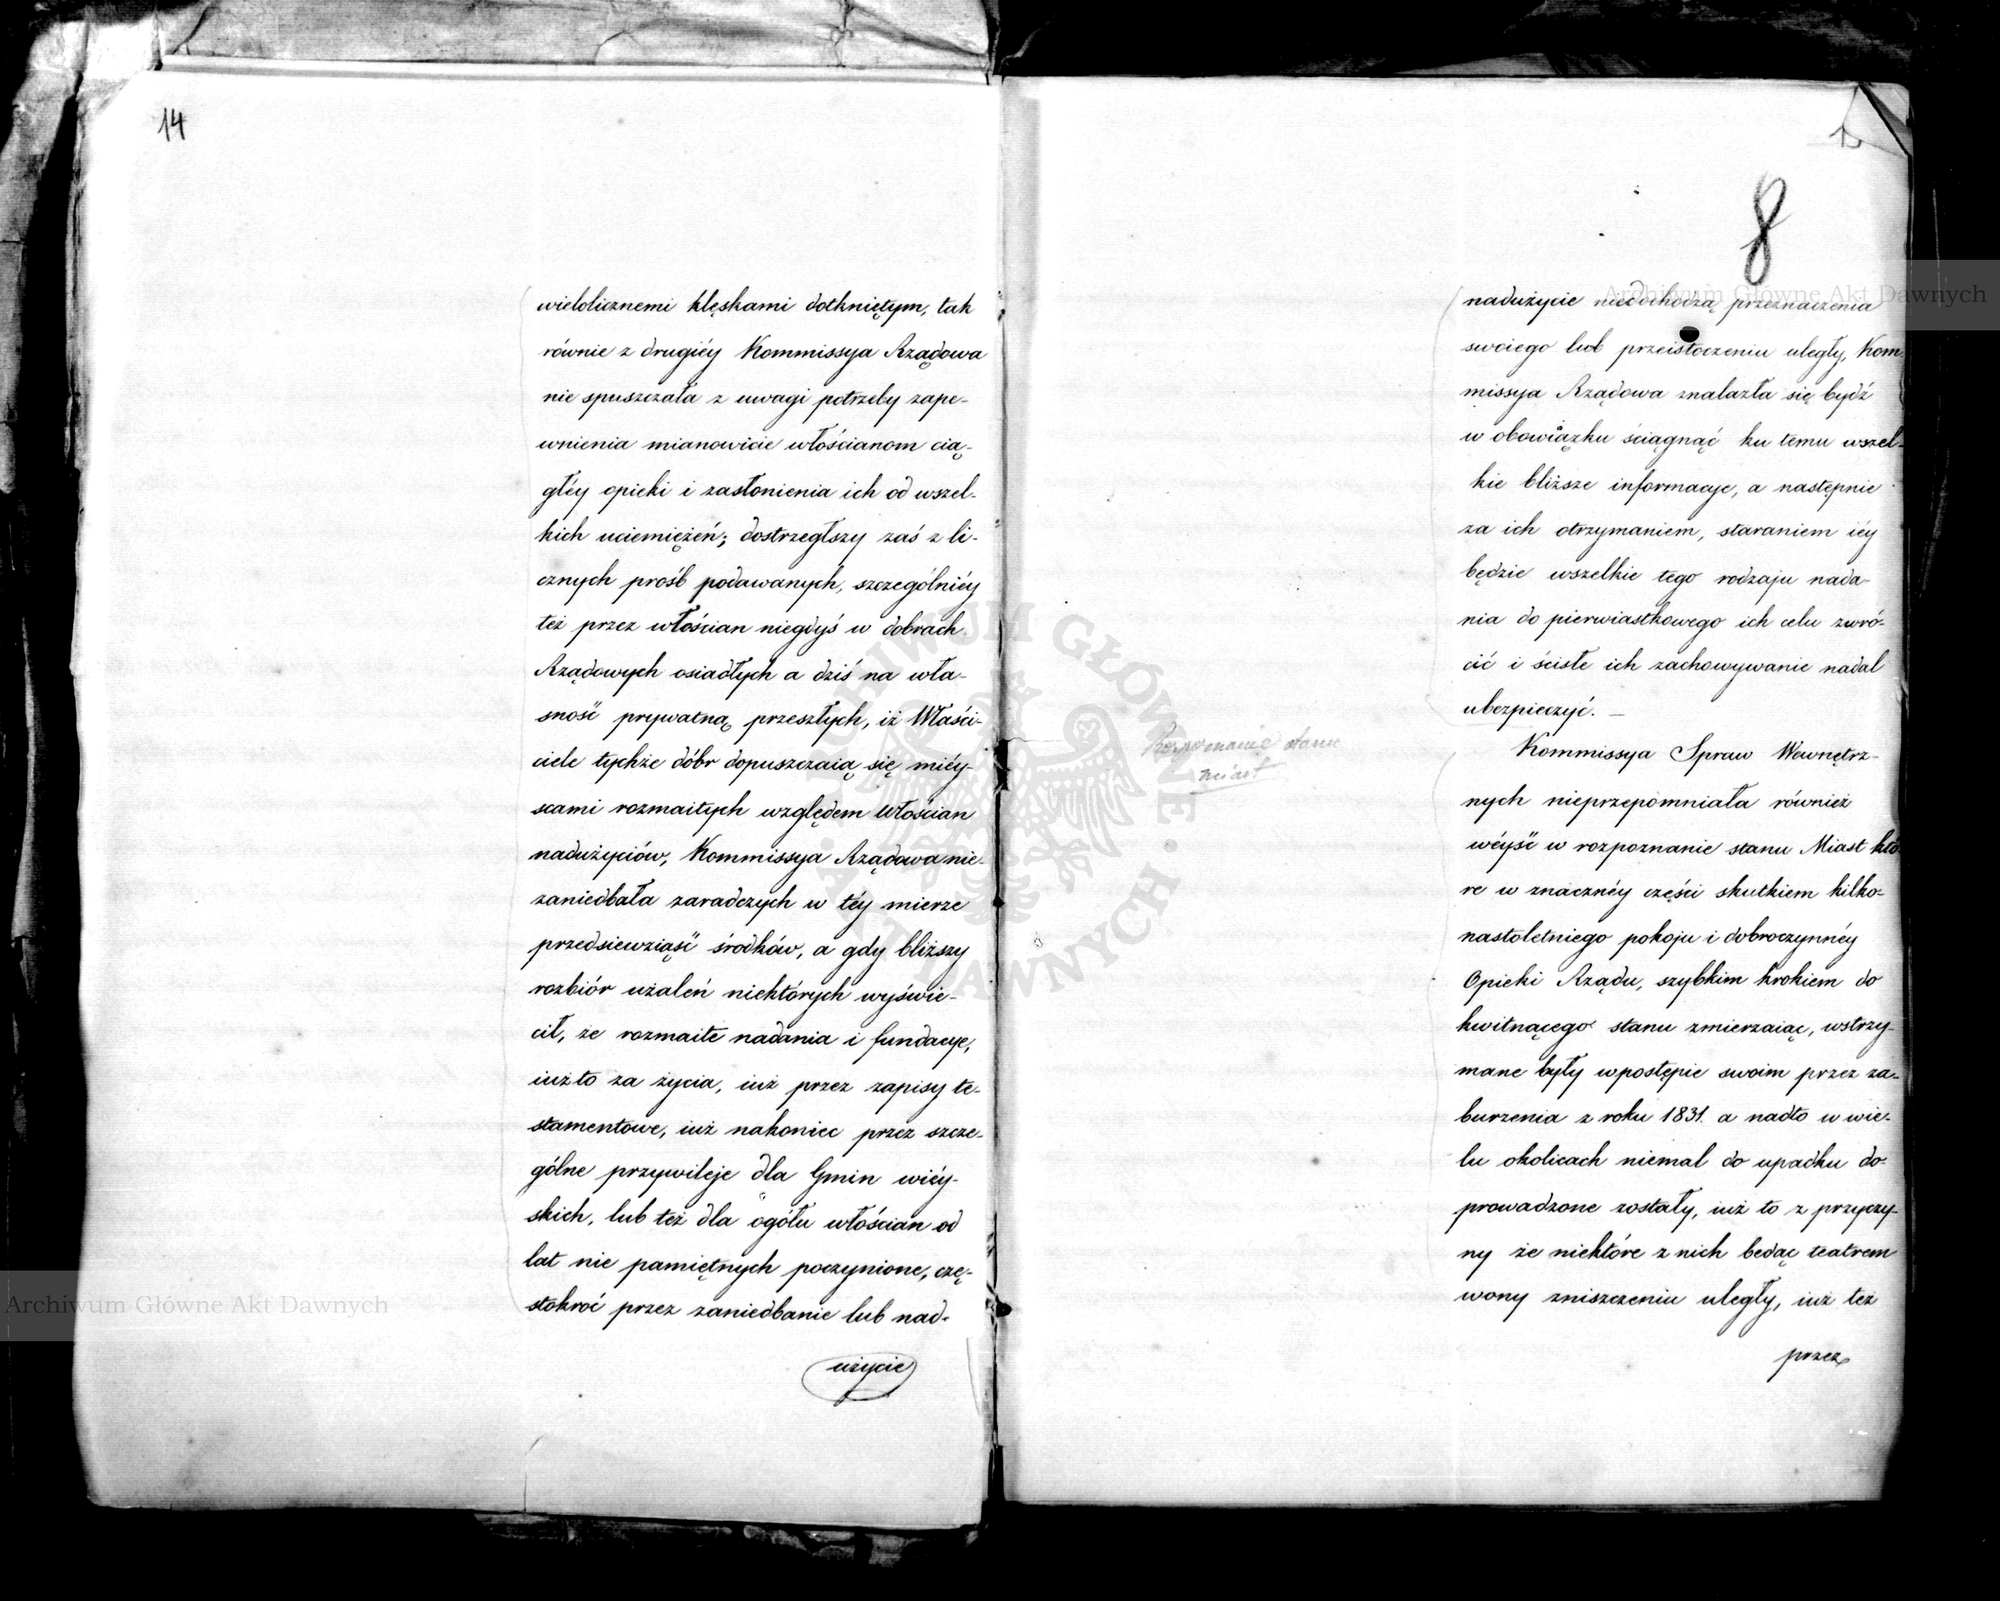 14
wielolicznemi klęskami dotkniętym, tak
równie z drugiéy Kommissya Rządowa
nie spuszczała z uwagi potrzeby zape-
wnienia mianowicie włościanom cią-
głéy opieki i zasłonienia ich od wszel-
kich uciemiężeń; dostrzegłszy zaś z li-
cznych próśb podawanych, szczególniéy
też przez włościan niegdyś w dobrach
Rządowych osiadłych a dziś na wła-
sność prywatną przeszłych, iż Właści-
ciele tychże dóbr dopuszczaią się miéy-
scami rozmaitych względem Włościan
nadużyciów, Kommissya Rządowa nie
zaniedbała zaradczych w téy mierze
przedsiewziąść środków, a gdy bliższy
rozbiór użaleń niektórych wyświe-
cił, że rozmaite nadania i fundacye,
iużto za życia, iuż przez zapisy te-
stamentowe, iuż nakoniec przez szcze-
gólne przywileje dla Gmin wiéy-
skich, lub też dla ogółu włościan od
lat nie pamiętnych poczynione, czę-
stokroć przez zaniedbanie lub nad-
użycie
8
nadużycie niedochodzą przeznaczenia
swoiego lub przeistoczeniu uległy, Kom
missya Rządowa znalazła się bydź
w obowiązku ściągnąć ku temu wszel-
kie bliższe informacye, a następnie
za ich otrzymaniem, staraniem iéy
będzie wszelkie tego rodzaju nada-
nia do pierwiastkowego ich celu zwró-
cić i ścisłe ich zachowywanie nadal
ubezpieczyć. —
Rozpoznanie stanu
miast
Kommissya Spraw Wewnętrz-
nych nieprzepomniała również
wéyść w rozpoznanie stanu Miast któ
re w znacznéy części skutkiem kilko-
nastoletniego pokoju i dobroczynnéy
Opieki Rządu, szybkim krokiem do
kwitnącego stanu zmierzaiąc, wstrzy-
mane były w postępie swoim przez za-
burzenia z roku 1831. a nadto w wie-
lu okolicach niemal do upadku do-
prowadzone zostały, iuż to z przyczy-
ny że niektóre z nich bedąc teatrem
wony zniszczeniu uległy, iuż też
przez
Archiwum Główne Akt Dawnych
Archiwum Główne Akt Dawnych
ARCHIWUM GŁÓWNE AKT DAWNYCH